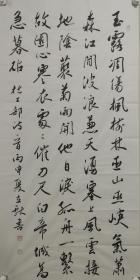 玉露凋傷楓樹林巫山巫峽氣蕭
森江間波浪兼天湧塞上風雲接
地陰叢菊兩開他日淚孤舟一繫
故園心寒衣處々催刀尺白帝城高
急暮砧 杜工部詩 丙申夏 書